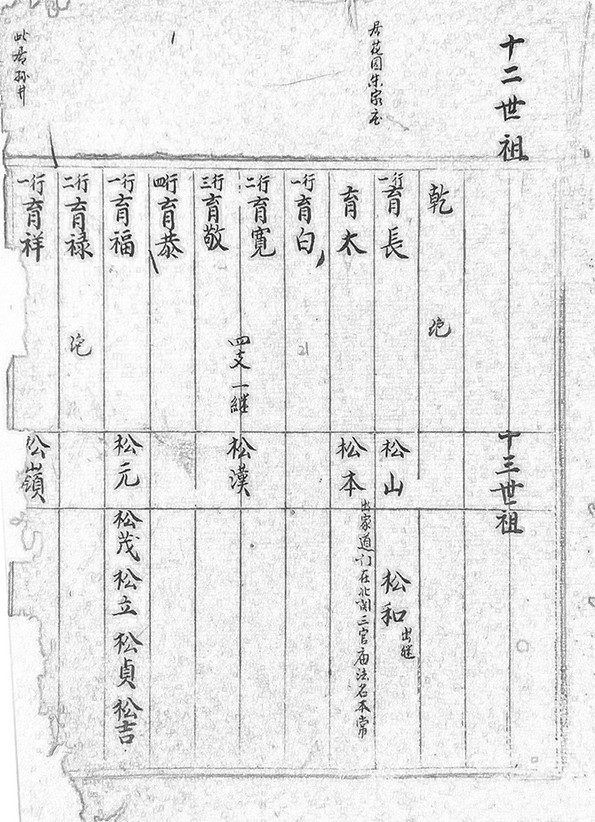 十二世祖
十三世祖
居花园朱家庄
乾 绝
行一 育長 松山 松和 出继
育太 松本 出家道门在北關三官庙法名本常
行一 育白
行二 育寬 四支一継 松漢
行三 育敬
行四 育恭
行一 育福 松元 松茂 松立 松貞 松吉
行二 育禄 绝
行一 育祥 松嶺
此居孙井